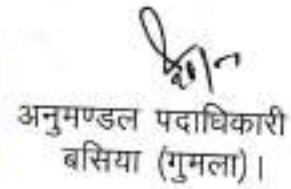 अनुमण्डल पदाधिकारी
बसिया (गुमला)।